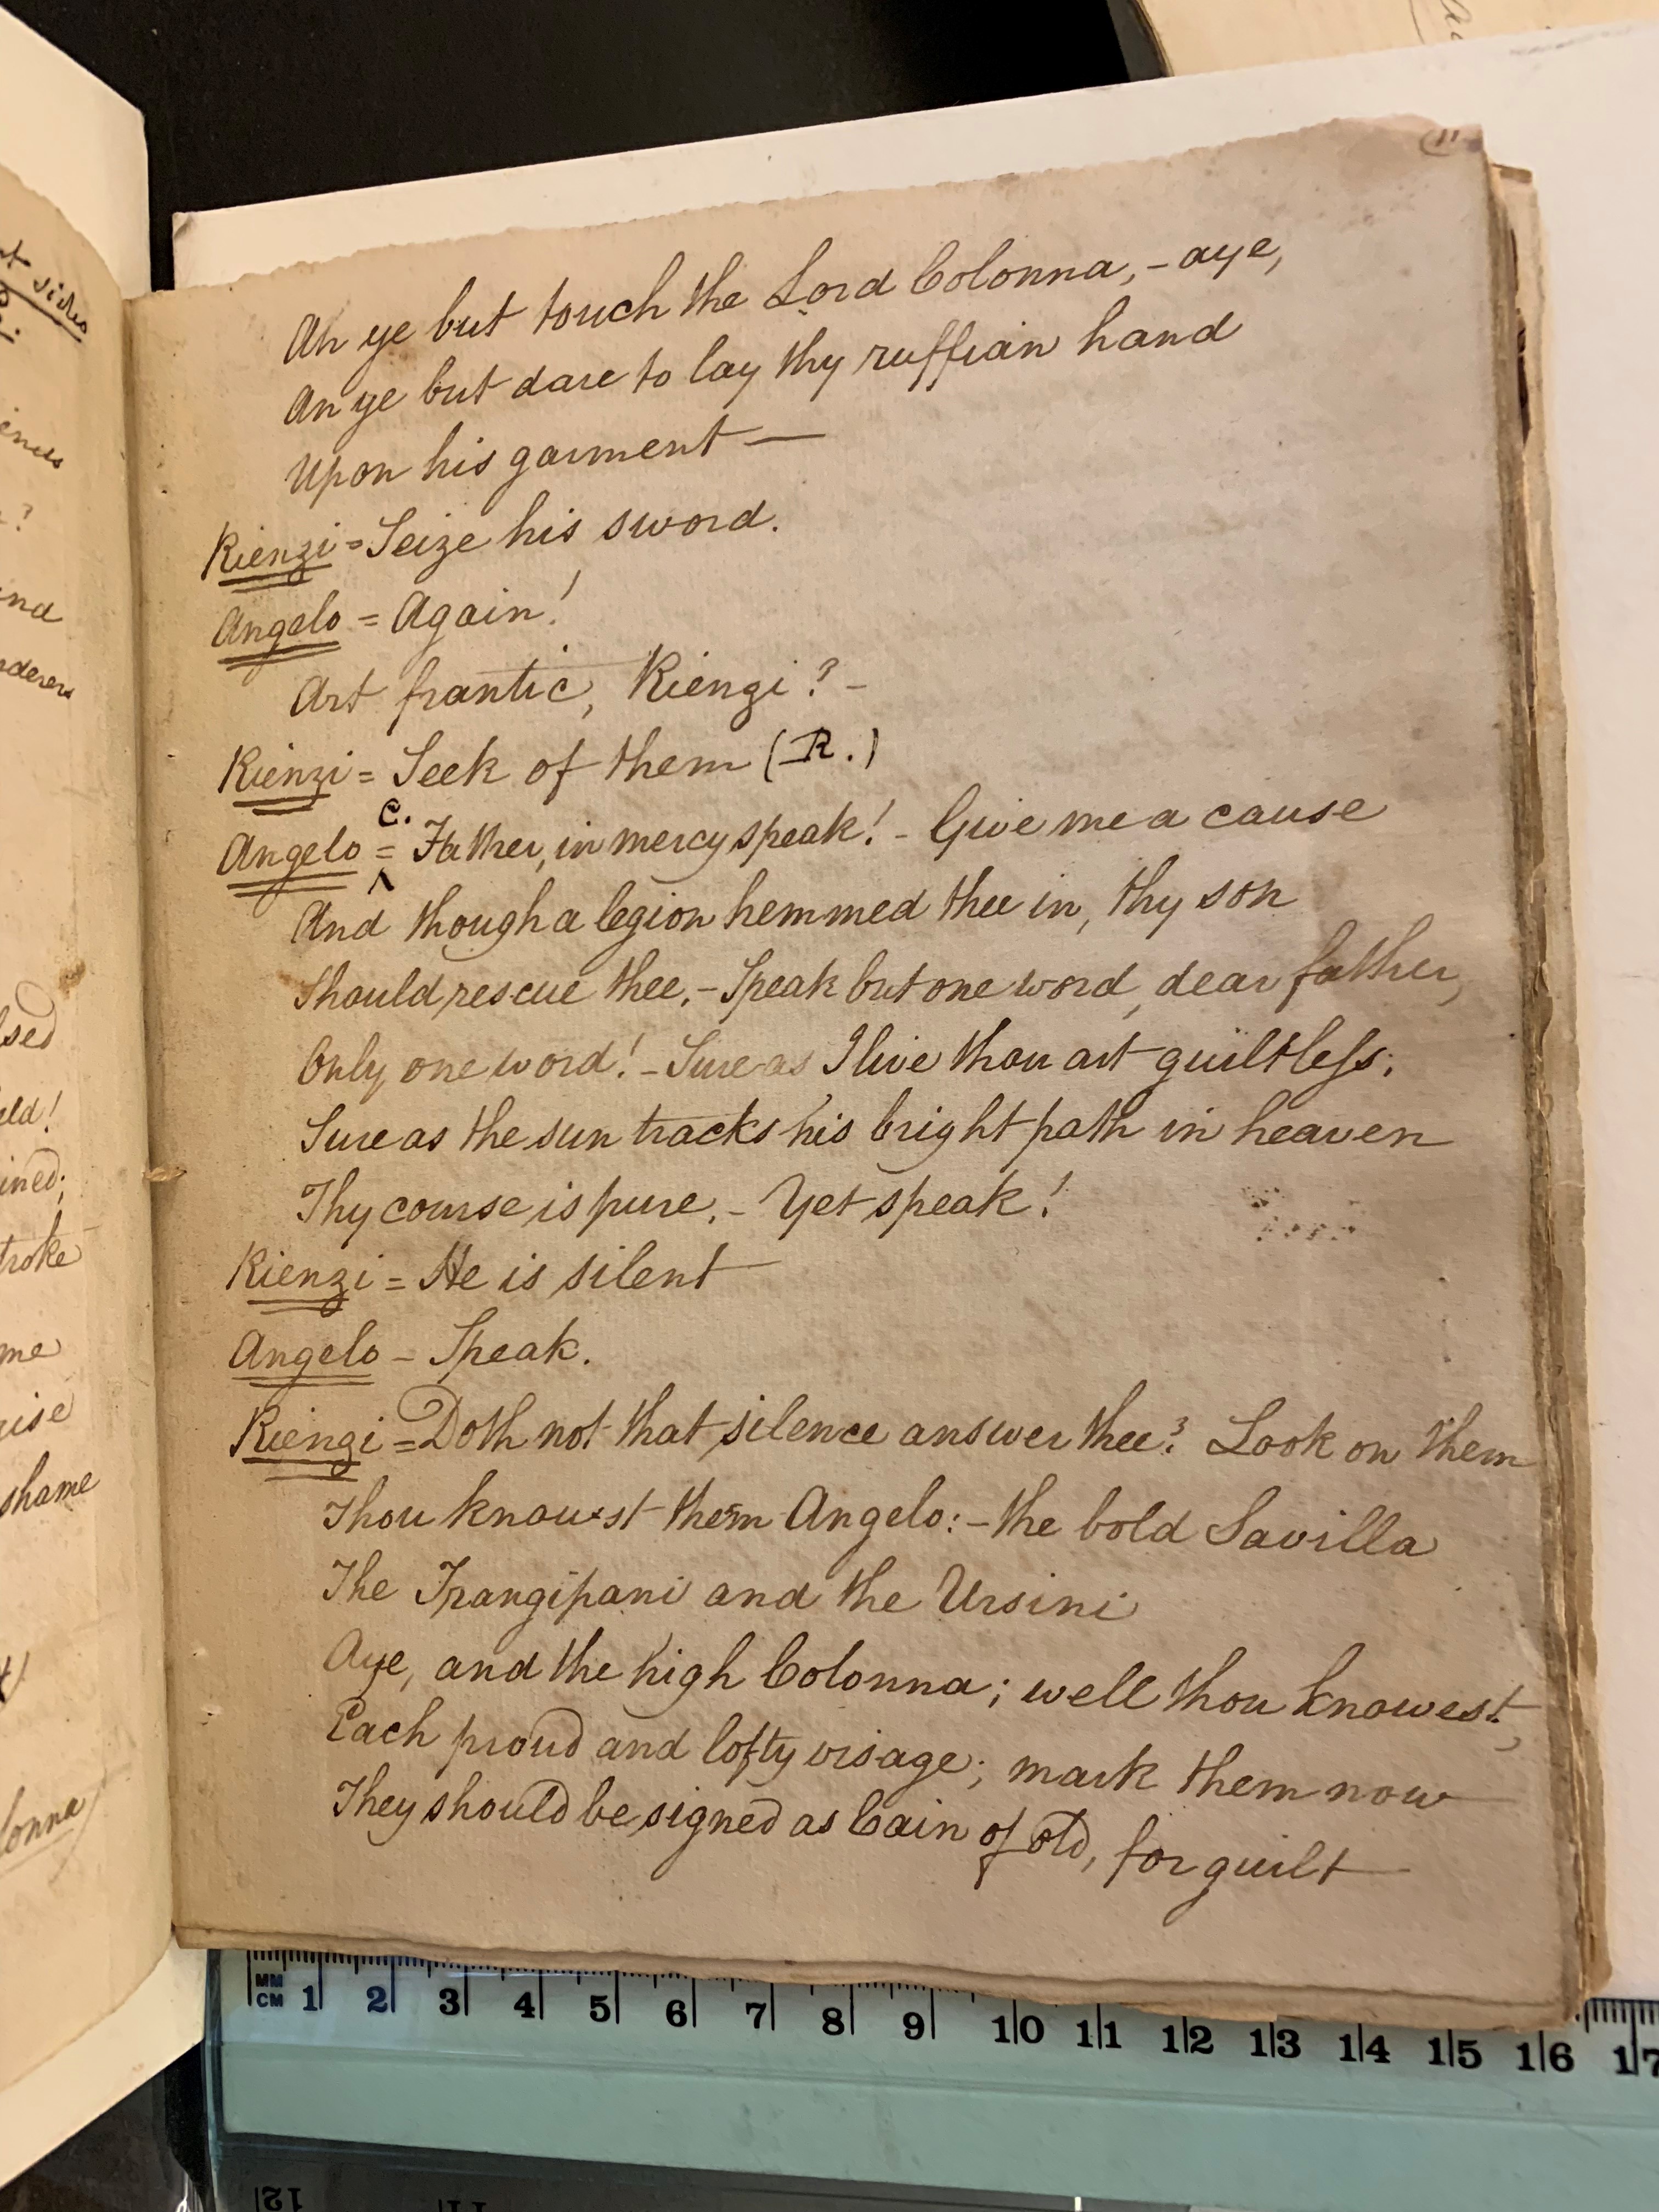 11
An ye but touch the Lord Colonna, - aye,
An ye but dare to lay thy ruffian hand
Upon his garment —
Rienzi = Seize his sword.
Angelo = Again!
Art frantic, Rienzi? -
Rienzi = Seek of them (R.)
C.
Angelo = Father, in mercy speak! - Give me a cause
And though a legion hemmed thee in, thy son
Should rescue thee, - Speak but one word, dear father,
Only one word! - Sure as I live thou art guiltless;
Sure as the sun tracks his bright path in heaven
Thy course is pure, - Yet speak!
Rienzi = He is silent
Angelo - Speak.
Rienzi = Doth not that silence answer thee? Look on them
Thou know'st them Angelo: - the bold Savilla
The Frangipani and the Ursini
Aye, and the high Colonna; well thou knowest,
Each proud and lofty visage; mark them now
They should be signed as Cain of old, for guilt
sides
ined;
troke
me
rise
shame
lonna
MM
CM 1 2 3 4 5 6 7 8 9 10 11 12 13 14 15 16 17
12 11